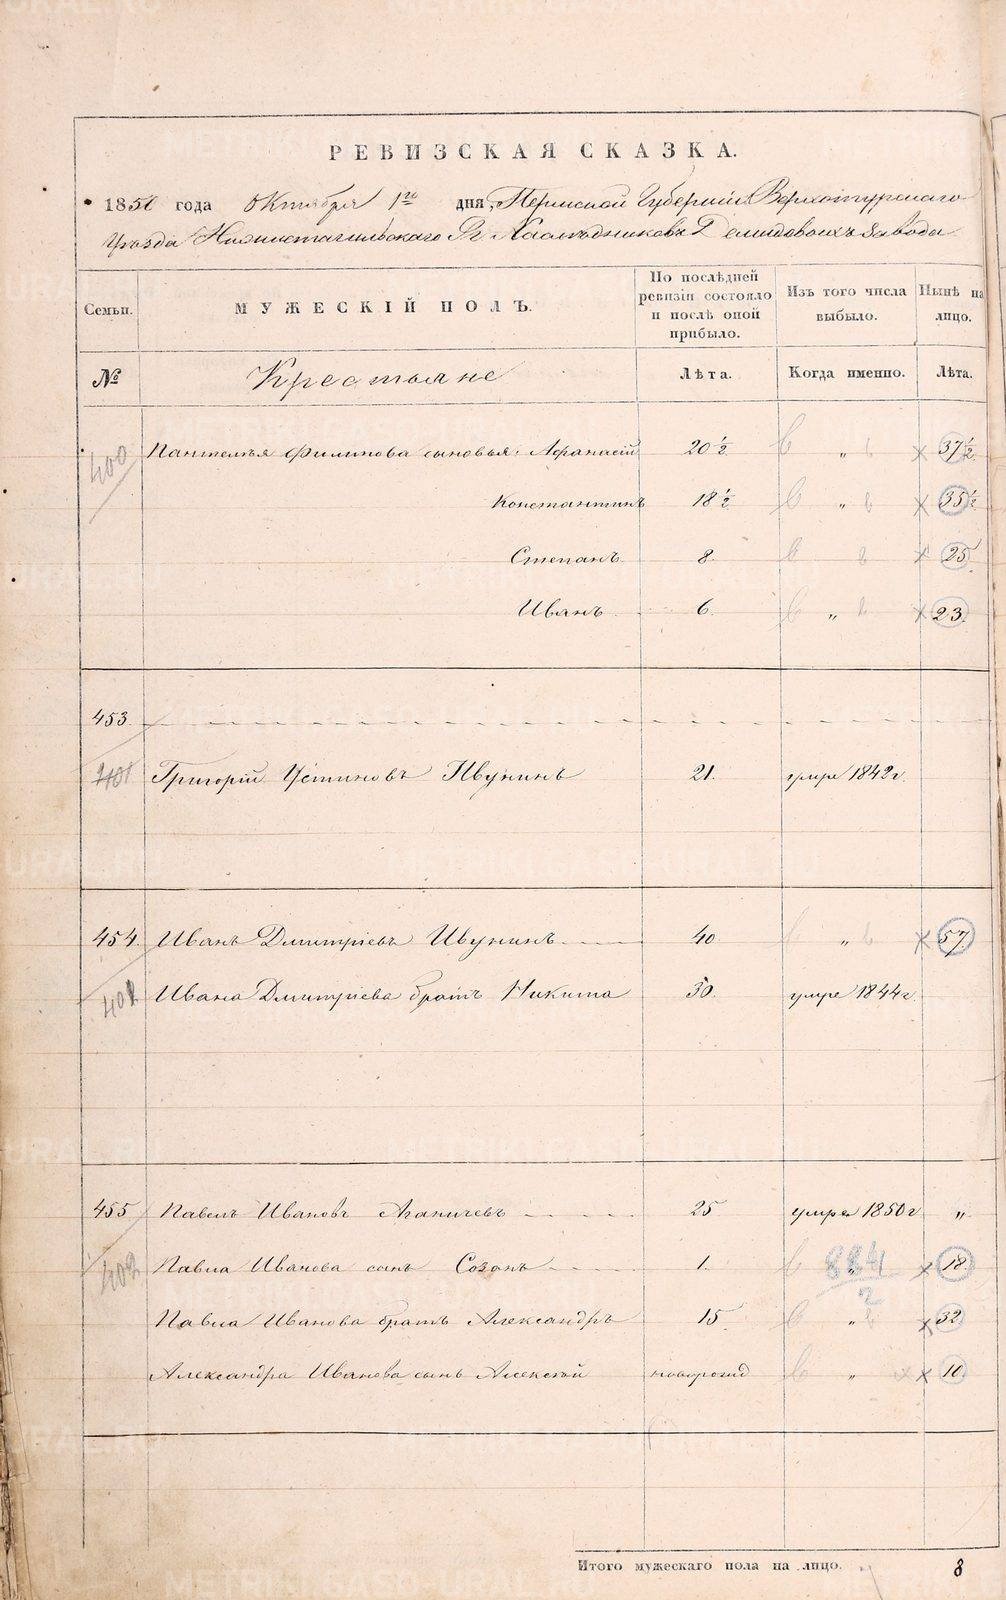 РЕВИЗСКАЯ СКАЗКА.
1850 года Октября 1го дня, Пермской Губерніи Верхотурскаго
Уѣзда Нижнетагильскаго Гг Наслѣдниковъ Демидовыхъ завода
Семьи. МУЖЕСКІЙ ПОЛЪ. По послѣдней ревизіи состояло и послѣ оной прибыло. Изъ того числа выбыло. Нынѣ на лицо.
№ Крестьяне Лѣта. Когда именно. Лѣта.
400 Пантелѣя Филипова сыновья: Афанасій 20 ½ „ 37 ½
Константинъ 18 ½ „ 35 ½
Степанъ 8 25
Иванъ 6. „ 23.
453
401 Григорій Устиновъ Ивунинъ 21. умре 1842 г.
454. Иванъ Дмитріевъ Ивунинъ 40 „ 57.
402 Ивана Дмитріева братъ Никита 30. умре 1844 г.
455 Павелъ Ивановъ 25 умре 1850 г „
403 Павла Иванова сынъ Созонъ 1. 884/2 „ 18.
Павла Иванова братъ Александръ 15 „ 32
Александра Иванова сынъ Алексѣй новорожд „ 10
Итого мужескаго пола на лицо. 8
METRIKI.GASO-URAL.RU